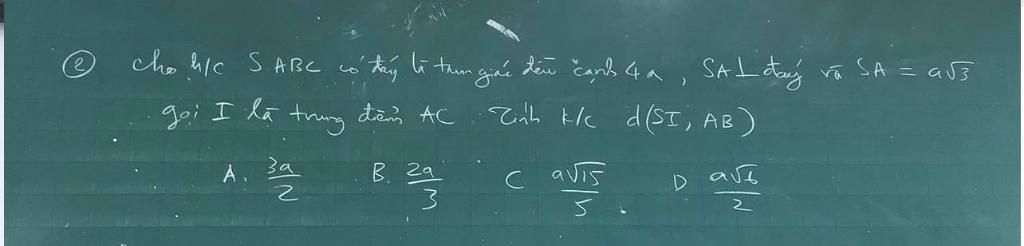 ② cho h/c S ABC có đáy là tam giác đều cạnh 4a, SA⊥đáy và SA = a√3
gọi I là trung điểm AC Tính k/c d(SI, AB)
A. 3a/2 B. 2a/3 C a√15/5. D a√6/2